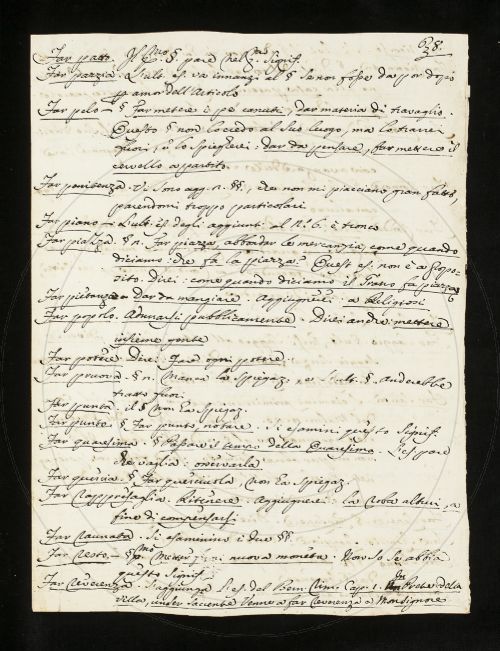 638.
Far patto. Il §. pare nel Signif.
Far pazzia. L'ult. es. va innanzi al § se non fosse da por dopo
p amor dell'Articolo
Far pelo — § Far mettere i pe canuti, dar materia di travaglio.
Questo § non lo credo al suo luogo, ma lo trarrei
fuori, e lo spiegherei: dar da pensare, far mettere il
cervello a partito.
Far penitenza. Vi sono agg. n. §§, che non mi piacciono gran fatto,
parendomi troppo particolari
Far piano — L'ult. es. degli aggiunti al N.º 6. è tronco
Far piazza. § n. Far piazza, abbodar le mercanzia, come quando
diciamo: che fa la piazza? Quest es. non è a propo-
sito. Direi: come quando diciamo il Grano fa piazza
Far pietanza Dar da mangiare. Aggiugnerei: a Religiosi
Far popolo. Adunarsi pubblicamente. Direi anche: mettere
insieme gente
Far potere Direi: Fare ogni potere.
Far pruova. § n. Manca la Spiegaz., e l'ult. §. anderebbe
tratto fuori.
Far punta. il § Non ha spiegaz.
Far punto. § Far punto, notare. si esamini questo Signif.
Far quaresima. § Passare il tempo della Quaresima. L'es. pare
che vaglia: osservarla
Far quercia. § Far querciuola, Non ha Spiegaz.
Far rappresaglia. Ritenere. Aggiugnerei: la roba altrui, a
fine di compensarsi
Far raunata. Si esaminino i due §§.
Far resto. — § Mettere nuova moneta. Non so se abbia
questo Signif.
Far reverenza. S'aggiunga l'es. del Bem. Cap. 1. Prete della
villa, un ser saccente Venne a far reverenza a Monsignore